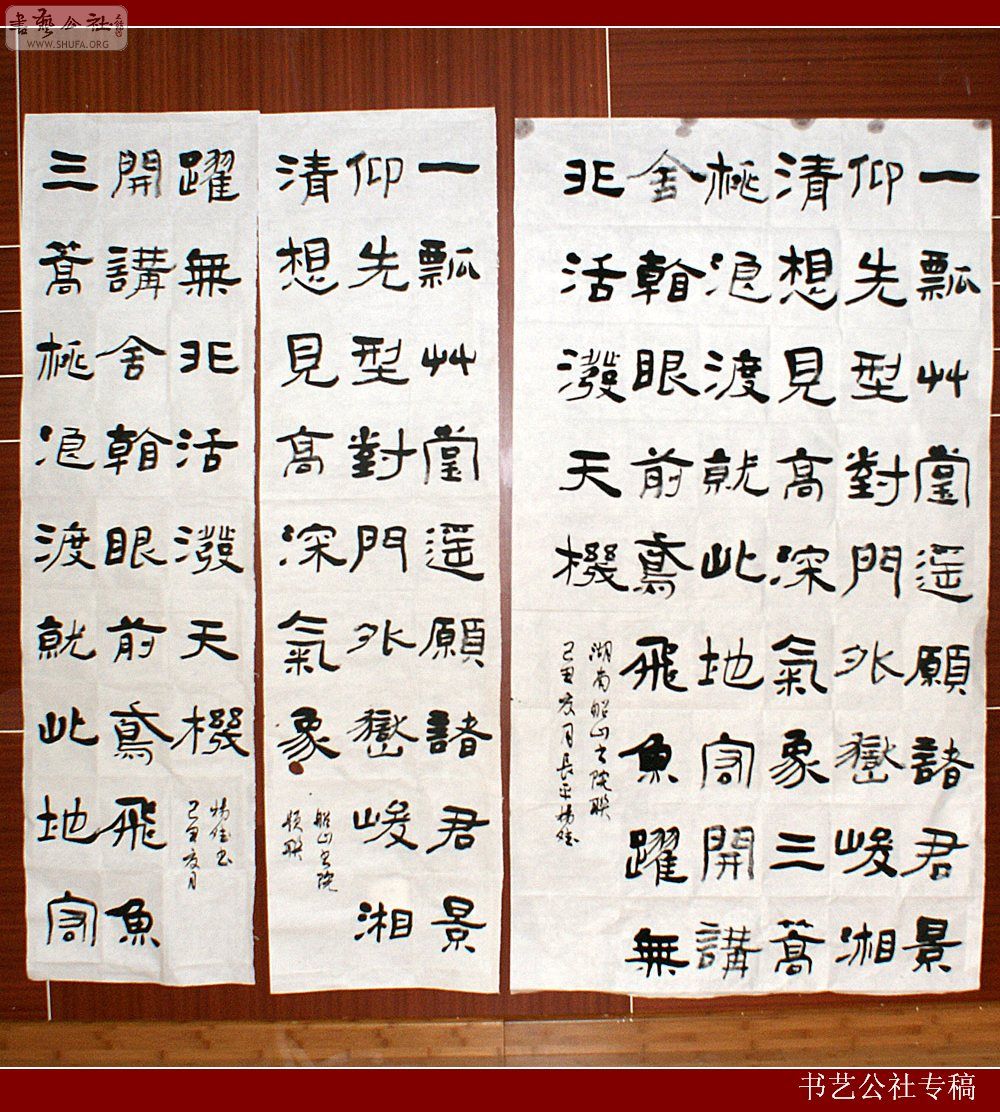 書藝公社
WWW.SHUFA.ORG
一瓢艸堂遥願諸君景
仰先型對門外嶽峻湘
清想見高深氣象三篙
桃浪渡就此地宏開講
舍看眼前鳶飛魚躍無
非活潑天機
湖南船山书院联
己丑夏月長平楊
一瓢艸堂遥願諸君景
仰先型對門外嶽峻湘
清想見高深氣象
船山书院
联
三篙桃浪渡就此地宏
開講舍看眼前鳶飛魚
躍無非活潑天機
己丑夏月
楊书
书艺公社专稿